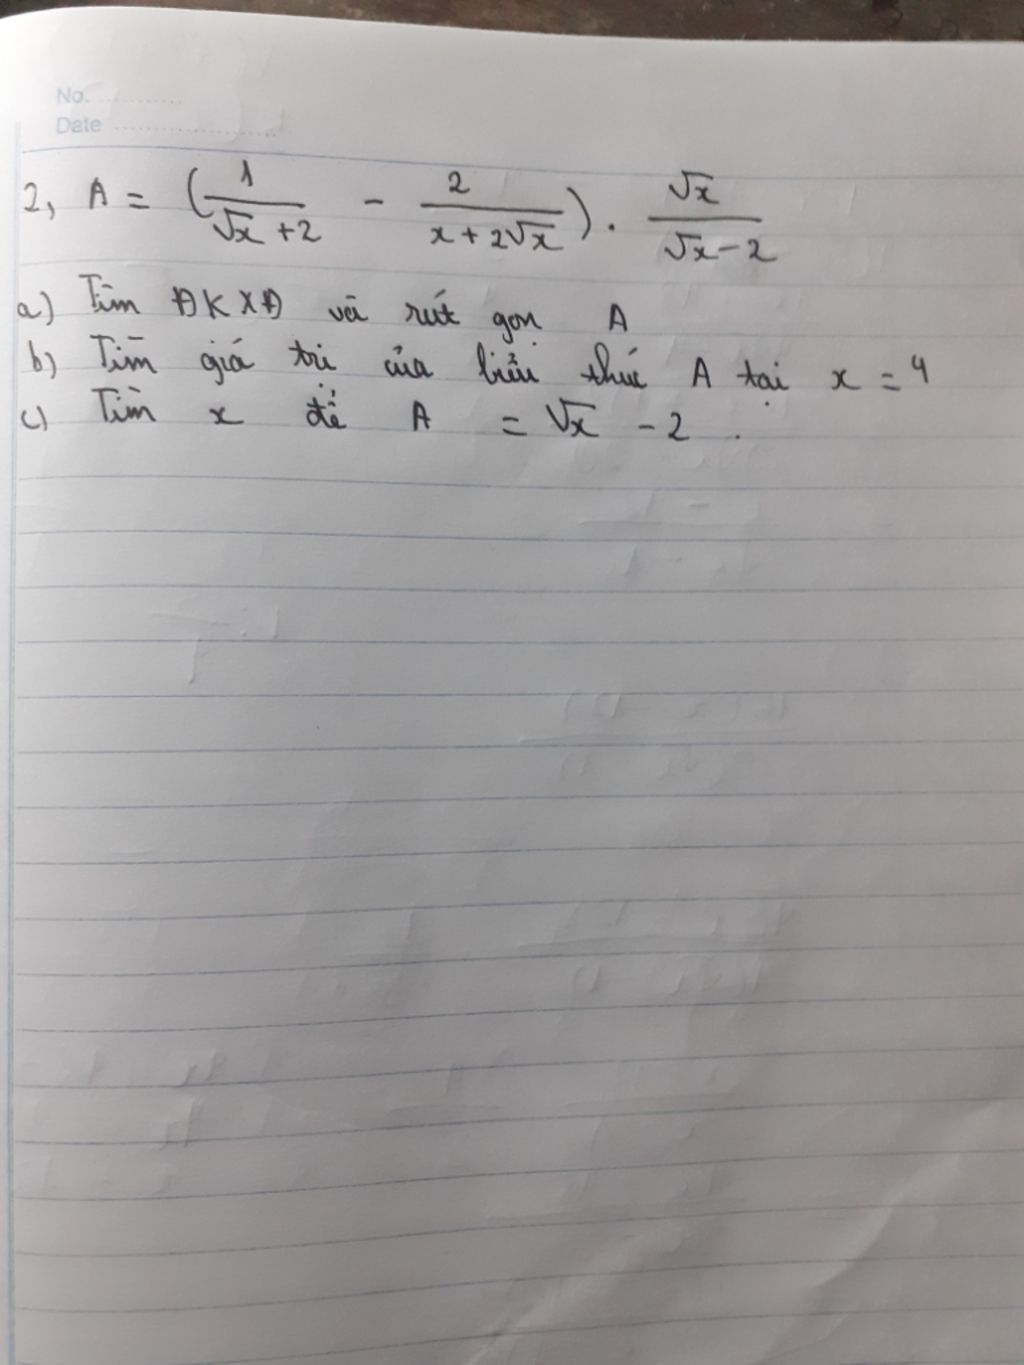 No. ............
Date ......................
2, A = (1/(√x + 2) - 2/(x + 2√x)) . √x/(√x - 2)
a) Tìm ĐKXĐ và rút gọn A
b) Tìm giá trị của biểu thức A tại x = 4
c) Tìm x để A = √x - 2 .